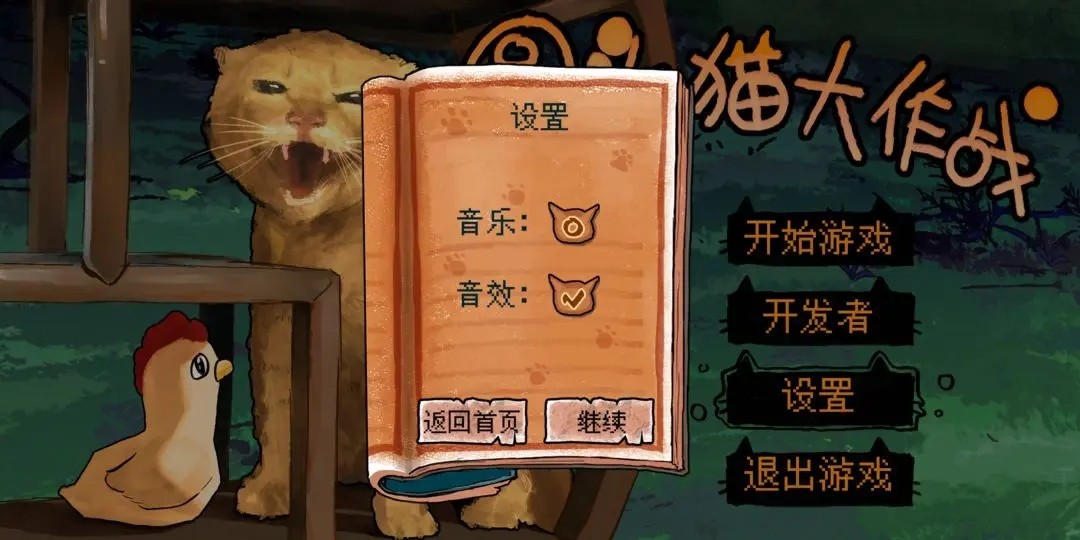 猫大作战
设置
音乐：
音效：
返回首页
继续
开始游戏
开发者
设置
退出游戏